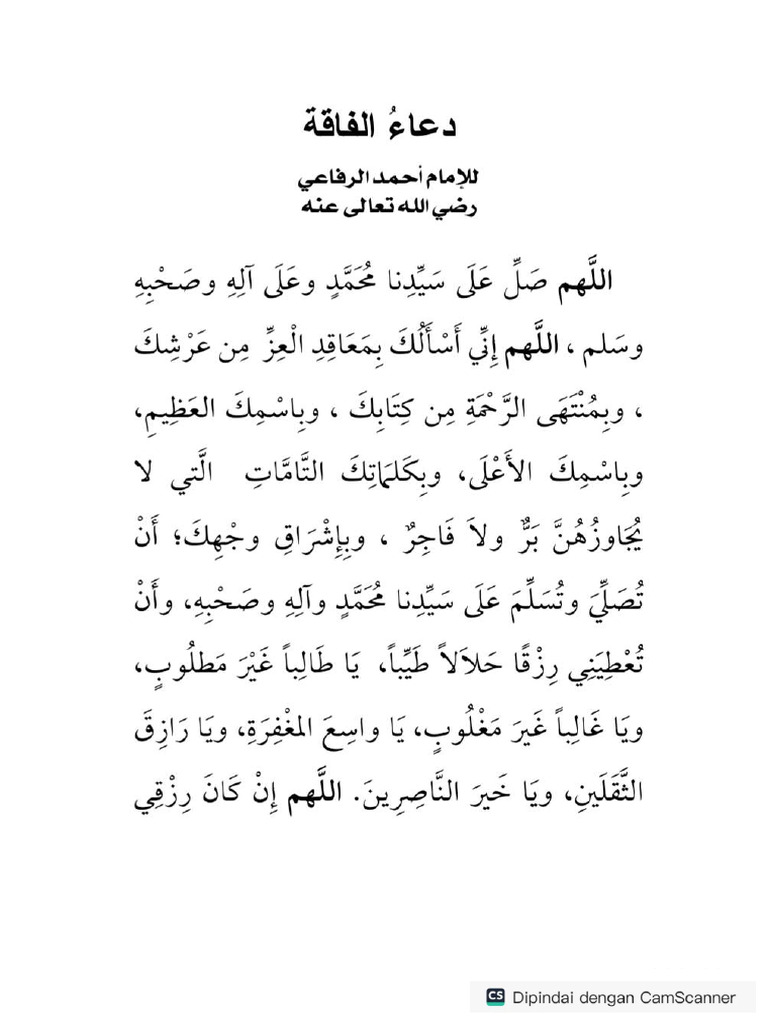 دعاءُ الفاقة
للإمام أحمد الرفاعي
رضي الله تعالى عنه
اللَّهم صَلِّ عَلَى سَيِّدِنا مُحَمَّدٍ وعَلَى آلِهِ وصَحْبِهِ
وسَلم ، اللَّهم إِنِّي أَسْأَلُكَ بِمَعَاقِدِ الْعِزِّ مِن عَرْشِكَ
، وبِمُنْتَهَى الرَّحْمَةِ مِن كِتَابِكَ ، وبِاسْمِكَ العَظِيمِ،
وبِاسْمِكَ الأَعْلَى، وبِكَلمَاتِكَ التَّامَّاتِ الَّتي لا
يُجَاوزُهُنَّ بَرٌّ ولاَ فَاجِرٌ ، وبِإِشْرَاقِ وجْهِكَ؛ أَنْ
تُصَلِّيَ وتُسَلِّمَ عَلَى سَيِّدِنا مُحَمَّدٍ وآلِهِ وصَحْبِهِ، وأَنْ
تُعْطِيَنِي رِزْقًا حَلاَلاً طَيِّباً، يَا طَالِباً غَيْرَ مَطلُوبٍ،
ويَا غَالِباً غَيرَ مَغْلُوبٍ، يَا واسِعَ المغْفِرَةِ، ويَا رَازِقَ
الثَّقَلَينِ، ويَا خَيرَ النَّاصِرِينَ. اللَّهم إِنْ كَانَ رِزْقِي
CS Dipindai dengan CamScanner